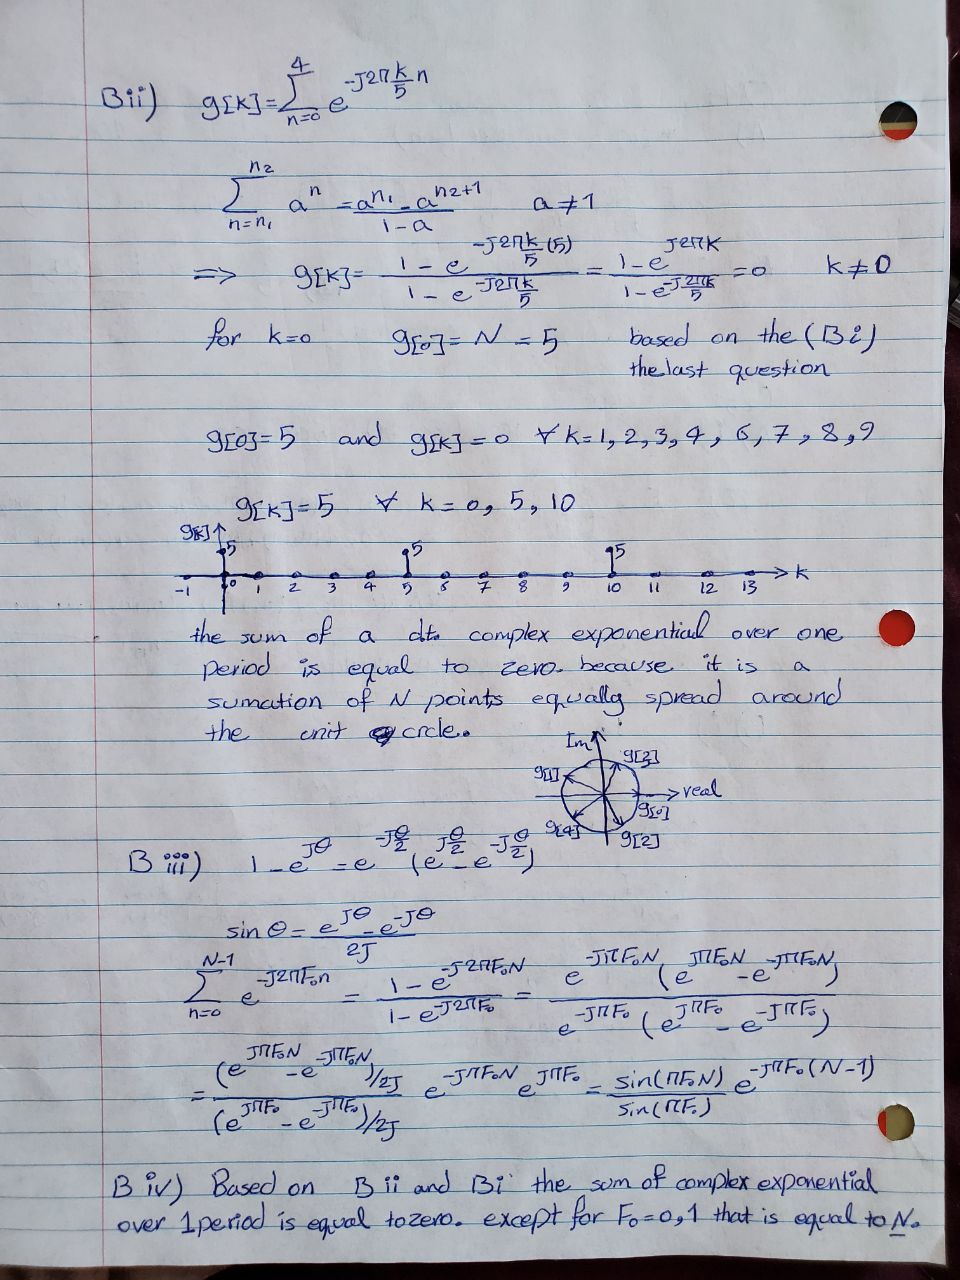 Bii) g[k]=∑_{n=0}^{4} e^{-J2πk/5 n}
∑_{n=n₁}^{n₂} aⁿ = (a^{n₁} - a^{n₂+1})/(1-a) a≠1
=> g[k]= (1 - e^{-J2πk/5 (5)})/(1 - e^{-J2πk/5}) = (1-e^{J2πk})/(1-e^{-J2πk/5}) = 0 k≠0
for k=0 g[0]= N = 5 based on the (Bi)
the last question
g[0]=5 and g[k]=0 ∀ k=1, 2, 3, 4, 6, 7, 8, 9
g[k]=5 ∀ k=0, 5, 10
g[k]
5 5 5
k
-1 0 1 2 3 4 5 6 7 8 9 10 11 12 13
the sum of a dt. complex exponential over one
period is equal to zero. because it is a
sumation of N points equally spread around
the unit crcle.
Im
g[3]
g[1]
real
g[0]
g[4]
g[2]
B iii) 1-e^{Jθ} = e^{-Jθ/2} (e^{Jθ/2} - e^{-Jθ/2})
sin θ = (e^{Jθ} - e^{-Jθ})/2J
∑_{n=0}^{N-1} e^{-J2πF₀n} = (1-e^{-J2πF₀N})/(1-e^{-J2πF₀}) = (e^{-JπF₀N} (e^{JπF₀N} - e^{-JπF₀N}))/(e^{-JπF₀} (e^{JπF₀} - e^{-JπF₀}))
= ((e^{JπF₀N} - e^{-JπF₀N})/2J)/((e^{JπF₀} - e^{-JπF₀})/2J) e^{-JπF₀N} e^{JπF₀} = sin(πF₀N)/sin(πF₀) e^{-JπF₀(N-1)}
B iv) Based on B ii and Bi the sum of complex exponential
over 1 period is equal to zero. except for F₀=0,1 that is equal to N.